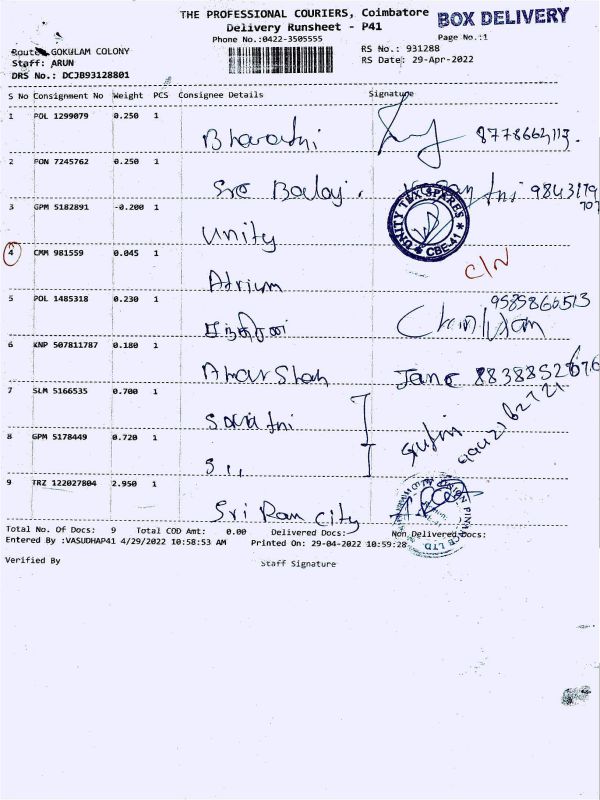 THE PROFESSIONAL COURIERS, Coimbatore
BOX DELIVERY
Delivery Runsheet - P41
Phone No.:0422-3505555
Page No.:1
Route: GOKULAM COLONY
RS No.: 931288
Staff: ARUN
RS Date: 29-Apr-2022
DRS No.: DCJB93128801
S No Consignment No Weight PCS Consignee Details Signature
1 POL 1299079 0.250 1
Bharathi
2 PON 7245762 0.250 1
Sre Balaji.
3 GPM 5182891 -0.200 1
Unity
UNITY TEX SPARES
CBE-41
4 CMM 981559 0.045 1
C/N
Atrium
5 POL 1485318 0.230 1
9585866513
6 KNP 507811787 0.180 1
Amar Shah
7 SLM 5166535 0.700 1
8 GPM 5178449 0.720 1
S ,,
9 TRZ 122027804 2.950 1
Sri Ram City
Total No. Of Docs: 9 Total COD Amt: 0.00 Delivered Docs: Non Delivered Docs:
Entered By :VASUDHAP41 4/29/2022 10:58:53 AM Printed On: 29-04-2022 10:59:28
Verified By Staff Signature